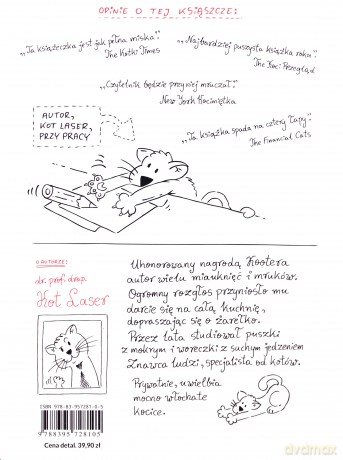 OPINIE O TEJ KSIĄSZCZE:
„Ta książeczka jest jak pełna miska".
The Kotki Times
„Najbardziej puszysta książka roku".
The Koci Przegląd
„Czytelnik będzie przy niej mruczał".
New York Kocimiętka
„Ta książka spada na cztery łapy".
The Financial Cats
AUTOR,
KOT LASER,
PRZY PRACY
O AUTORZE:
dr. prof. drap.
Kot Laser
Uhonorowany nagrodą Kootera
autor wielu miauknięć i mruków.
Ogromny rozgłos przyniosło mu
darcie się na całą kuchnię,
dopraszając się o żarełko.
Przez lata studiował puszki
z mokrym i woreczki z suchym jedzeniem
Znawca ludzi, specjalista od kotów.
Prywatnie, uwielbia
mocno włochate
kocice.
ISBN 978-83-957281-0-5
9 788395 728105
Cena detal. 39,90 zł
dvdmax